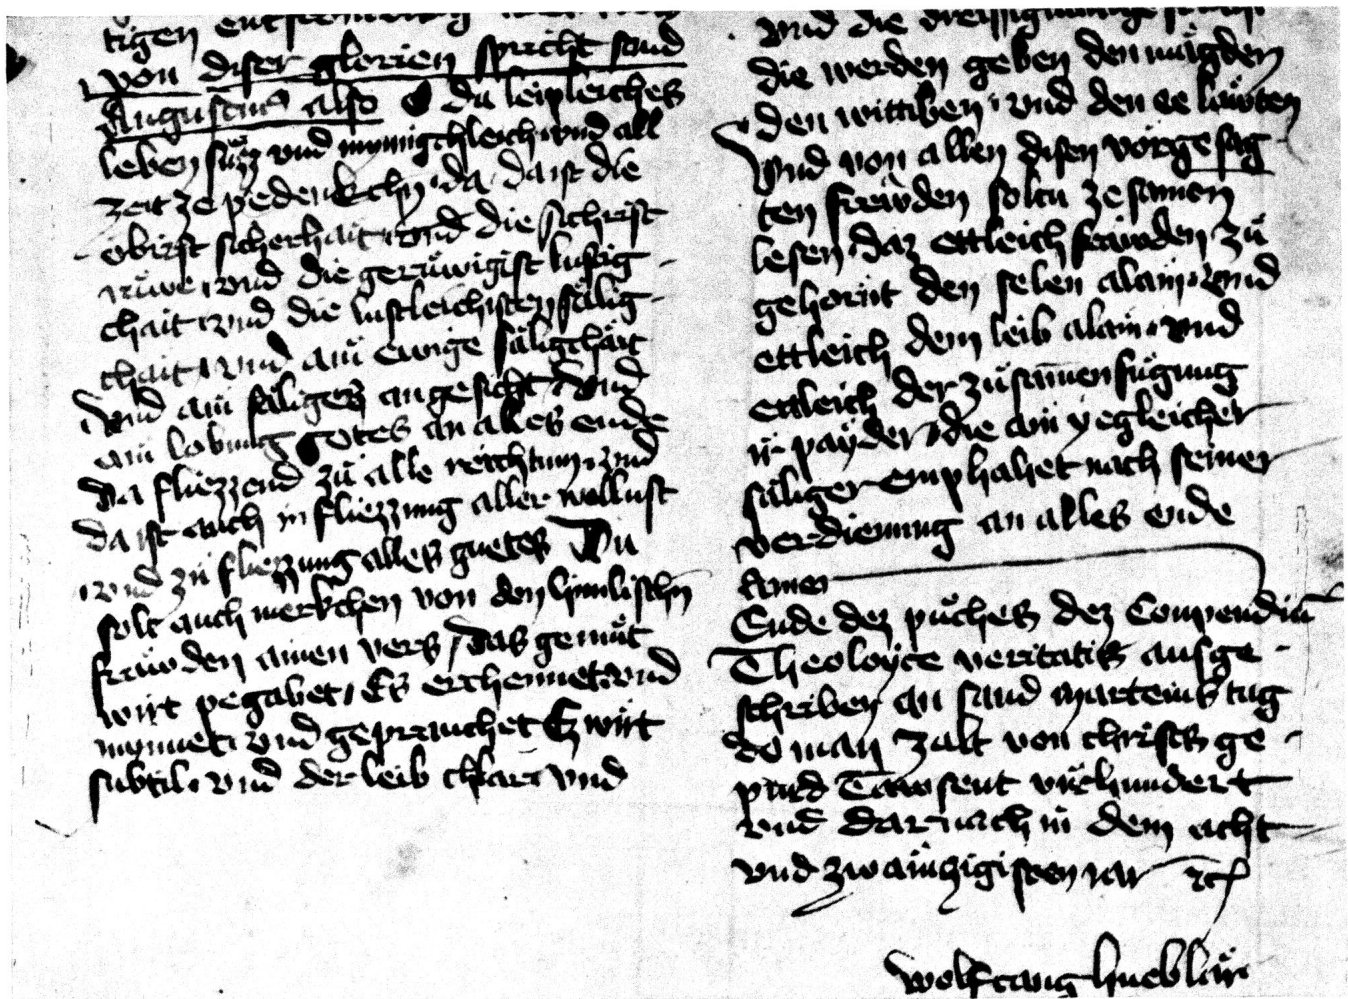 tigen
von diser glorien spricht sand
Augustins also O da leipleiches
leben süzz vnd mynnigchleich vnd all
zeit ze pedenkchn da da ist die
obrist sicherhait vnd die sichrist
rüwe vnd die gerüwigist lustig
chait vnd die lustleichisten sälig
chait vnd ain ewige säligchait
Vnd ain säliges angesicht vnd
ain lobung gotes an alles ende
Da fliezzend zü alle reichtum vnd
da ist auch in fliezzung aller wollust
vnd zü fliezzung alles guetes Du
solt auch merkchen von den himlischn
fräwden ainen vers / das gemüt
wirt pegabet / Es erchennet vnd
mynnet vnd geprauchet Es wirt
subtil vnd der leib chlar vnd
vnd die
die werden geben den mägden
den wittiben vnd den ee läwten
Vnd von allen disen vorgesag
ten frewden soltu zesamen
lesen daz ettleich fräwden zü
gehornt den selen alain vnd
ettleich dem leib alain vnd
ettleich der züsamenfügung
ir payder die ain yegleicher
säliger emphahet nach seiner
verdienung an alles ende
Amen
Ende dez püches dez Compendiū
Theoloyce veritatis aufge
schriben an sand marteins tag
do man zalt von christs ge
purd Tawsent vierhundert
vnd darnach in dem acht
vnd zwainzigisten iar etc
wolfgang hueblär